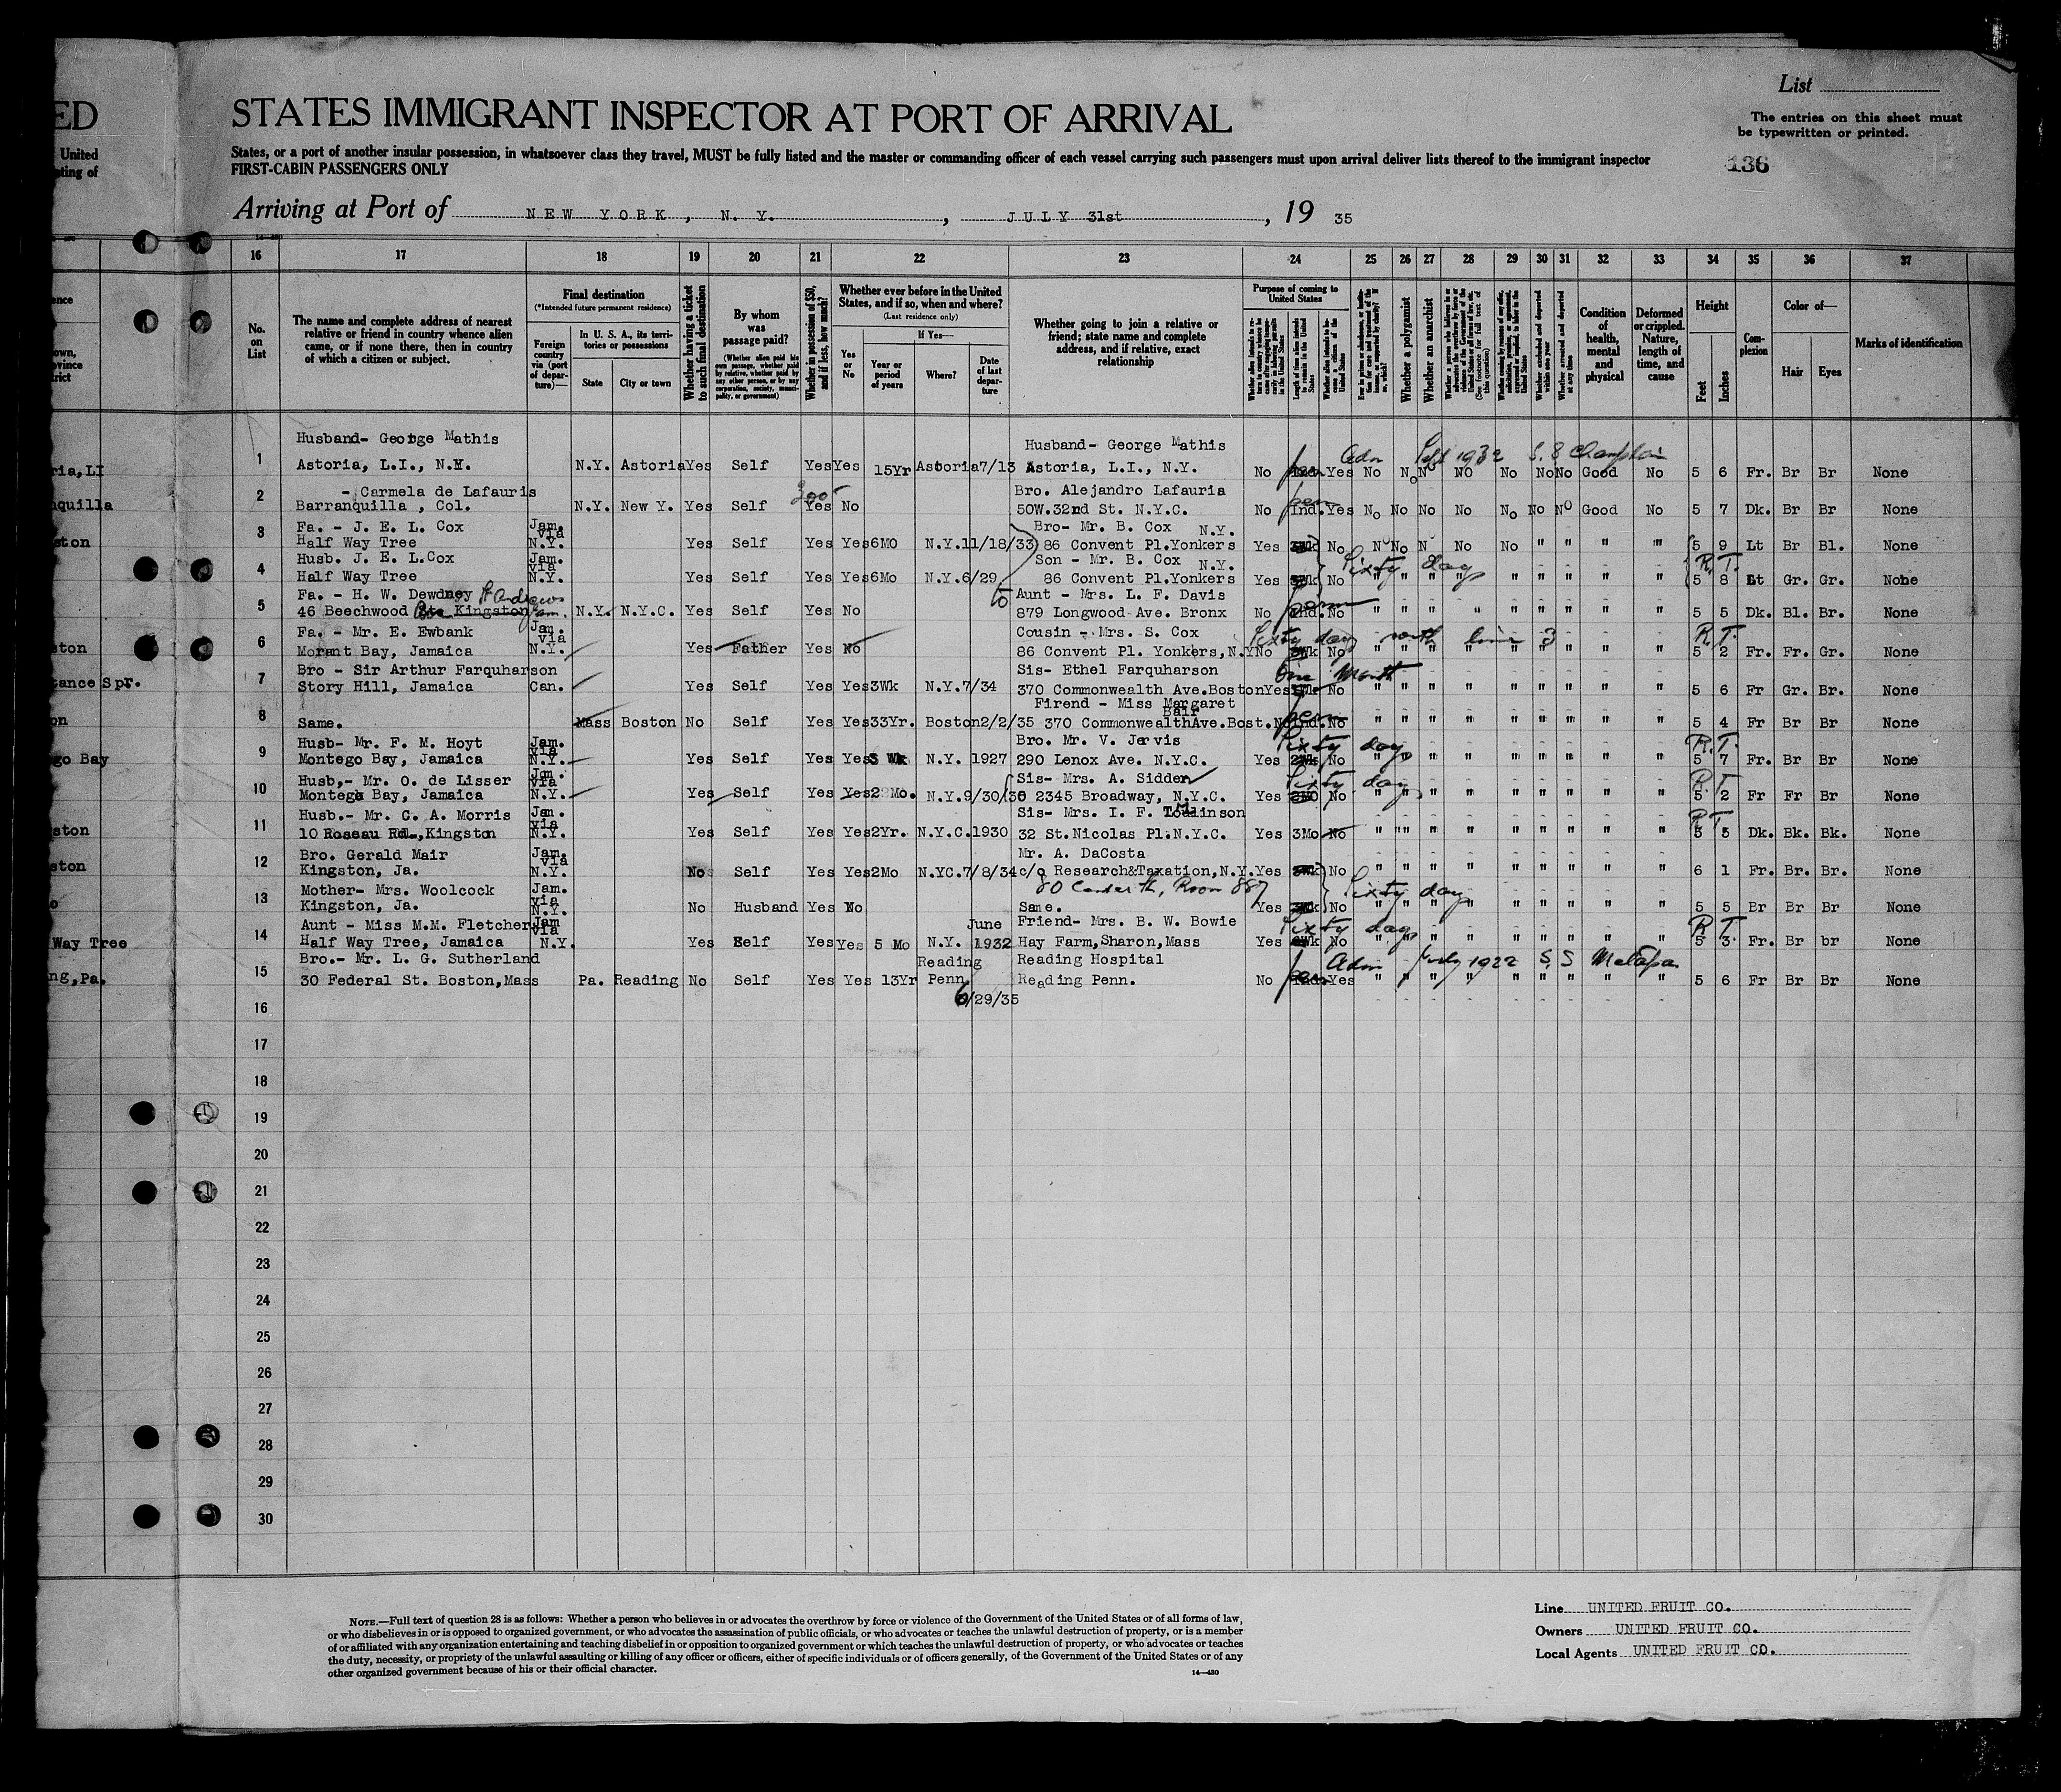 ED
United
STATES IMMIGRANT INSPECTOR AT PORT OF ARRIVAL
List
The entries on this sheet must
be typewritten or printed.
States, or a port of another insular possession, in whatsoever class they travel, MUST be fully listed and the master or commanding officer of each vessel carrying such passengers must upon arrival deliver lists thereof to the immigrant inspector
FIRST-CABIN PASSENGERS ONLY
136
Arriving at Port of NEW YORK, N. Y., JULY 31st, 19 35
16 17 18 19 20 21 22 23 24 25 26 27 28 29 30 31 32 33 34 35 36 37
No. on List
The name and complete address of nearest relative or friend in country whence alien came, or if none there, then in country of which a citizen or subject.
Final destination
(*Intended future permanent residence)
Foreign country via (port of departure)—
In U. S. A., its territories or possessions
State
City or town
Whether having a ticket to such final destination
By whom was passage paid?
(Whether alien paid his own passage, whether paid by relative, whether paid by any other person, or by any corporation, society, municipality, or government)
Whether in possession of $50, and if less, how much?
Whether ever before in the United States, and if so, when and where?
(Last residence only)
Yes or No
If Yes—
Year or period of years
Where?
Date of last departure
Whether going to join a relative or friend; state name and complete address, and if relative, exact relationship
Purpose of coming to United States
Whether a polygamist
Whether an anarchist
Condition of health, mental and physical
Deformed or crippled. Nature, length of time, and cause
Height
Feet
Inches
Complexion
Color of—
Hair
Eyes
Marks of identification
Husband- George Mathis
Husband- George Mathis
Adm Sept 1932 S.S Champlain
1 Astoria, L.I., N.Y. N.Y. Astoria Yes Self Yes Yes 15Yr Astoria 7/13 Astoria, L.I., N.Y. No Yes No No No NO No No No Good No 5 6 Fr. Br Br None
- Carmela de Lafauris
300
Bro. Alejandro Lafauria
perm
2 Barranquilla, Col. N.Y. New Y. Yes Self Yes No 50W.32nd St. N.Y.C. No Ind. Yes No No No No No No No Good No 5 7 Dk. Br Br None
Fa. - J. E. L. Cox Jam. via Bro- Mr. B. Cox N.Y.
3 Half Way Tree N.Y. Yes Self Yes Yes 6MO N.Y. 11/18/33 86 Convent Pl.Yonkers Yes 3Wk No N No N No No " " " " 5 9 Lt Br Bl. None
Husb. J. E. L.Cox Jam. via Son - Mr. B. Cox N.Y.
Sixty days R.T.
4 Half Way Tree N.Y. Yes Self Yes Yes 6Mo N.Y. 6/29 86 Convent Pl.Yonkers Yes 3Wk No " " " " " " " " " 5 8 Lt Gr. Gr. None
Fa. - H. W. Dewdney St Andrews Aunt - Mrs. L. F. Davis
perm
5 46 Beechwood Ave Kingston Jam. N.Y. N.Y.C. Yes Self Yes No 879 Longwood Ave. Bronx No Ind. No " " " " " " " " " 5 5 Dk. Bl. Br. None
Fa. - Mr. E. Ewbank Jam. via Cousin - Mrs. S. Cox
Sixty days R.T.
6 Morant Bay, Jamaica N.Y. Yes Father Yes No 86 Convent Pl. Yonkers,N.Y No No " " " " " " " " " 5 2 Fr. Fr. Gr. None
Bro - Sir Arthur Farquharson Sis- Ethel Farquharson
One Month
7 Story Hill, Jamaica Can. Yes Self Yes Yes 3Wk N.Y. 7/34 370 Commonwealth Ave.Boston Yes No " " " " " " " " " 5 6 Fr Gr. Br. None
Firend - Miss Margaret Bair
perm
8 Same. Mass Boston No Self Yes Yes 33Yr. Boston 2/2/35 370 CommonwealthAve.Bost. No Ind. No " " " " " " " " " 5 4 Fr Br Br None
Husb- Mr. F. M. Hoyt Jam. via Bro. Mr. V. Jervis
Sixty days R.T.
9 Montego Bay, Jamaica N.Y. Yes Self Yes Yes 3 Wk N.Y. 1927 290 Lenox Ave. N.Y.C. Yes 2Wk No " " " " " " " " " 5 7 Fr. Br Br None
Husb,- Mr. O. de Lisser Jam. via Sis- Mrs. A. Sidden
Sixty days R.T
10 Montego Bay, Jamaica N.Y. Yes Self Yes Yes 2 Mo. N.Y. 9/30/30 2345 Broadway, N.Y.C. Yes 2MO No " " " " " " " " " 5 2 Fr Fr Br None
Husb.- Mr. C. A. Morris Jam. via Sis- Mrs. I. F. Tomlinson
R.T
11 10 Roseau Rd.,Kingston N.Y. Yes Self Yes Yes 2Yr. N.Y.C. 1930 32 St.Nicolas Pl.N.Y.C. Yes 3Mo No " " " " " " " " " 5 5 Dk. Bk. Bk. None
Bro. Gerald Mair Jam. via Mr. A. DaCosta
12 Kingston, Ja. N.Y. No Self Yes Yes 2Mo N.YC. 7/8/34 c/o Research&Taxation,N.Y. Yes No " " " " " " " " " 6 1 Fr. Br. Br. None
80 Center St, Room 887
Mother- Mrs. Woolcock Jam. via
Sixty days
13 Kingston, Ja. N.Y. No Husband Yes No Same. Yes 3Wk No " " " " " " " " " 5 5 Br Br Br None
Aunt - Miss M.M. Fletcher Jam via June Friend- Mrs. B. W. Bowie
Sixty days R.T.
14 Half Way Tree, Jamaica N.Y. Yes Self Yes Yes 5 Mo N.Y. 1932 Hay Farm,Sharon,Mass Yes No " " " " " " " " " 5 3 Fr. Br br None
Bro.- Mr. L. G. Sutherland Reading Reading Hospital
Adm July 1922 S.S Metapan
15 30 Federal St. Boston,Mass Pa. Reading No Self Yes Yes 13Yr Penn. Reading Penn. No Ind. Yes " " " " " " " " " 5 6 Fr Br Br None
6/29/35
16
17
18
19
20
21
22
23
24
25
26
27
28
29
30
NOTE.—Full text of question 28 is as follows: Whether a person who believes in or advocates the overthrow by force or violence of the Government of the United States or of all forms of law,
or who disbelieves in or is opposed to organized government, or who advocates the assassination of public officials, or who advocates or teaches the unlawful destruction of property, or is a member
of or affiliated with any organization entertaining and teaching disbelief in or opposition to organized government or which teaches the unlawful destruction of property, or who advocates or teaches
the duty, necessity, or propriety of the unlawful assaulting or killing of any officer or officers, either of specific individuals or of officers generally, of the Government of the United States or of any
other organized government because of his or their official character.
14—480
Line UNITED FRUIT CO.
Owners UNITED FRUIT CO.
Local Agents UNITED FRUIT CO.